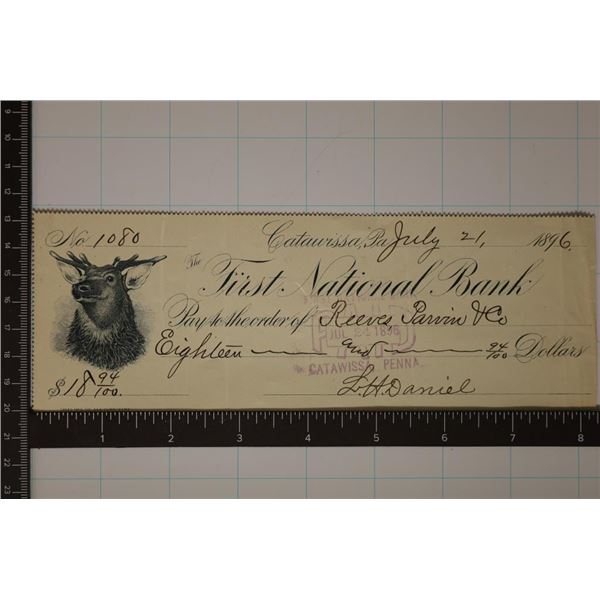 No 1080 Catawissa, Pa July 21, 1896.
The First National Bank
Pay to the order of Reeves Parvin & Co
PAID
JUL 21 1896
Eighteen and 94/100 Dollars
CATAWISSA, PENNA.
$18 94/100. L. H. Daniel
9
10
11
12
13
14
15
16
17
18
19
20
21
22
23
1 2 3 4 5 6 7 8